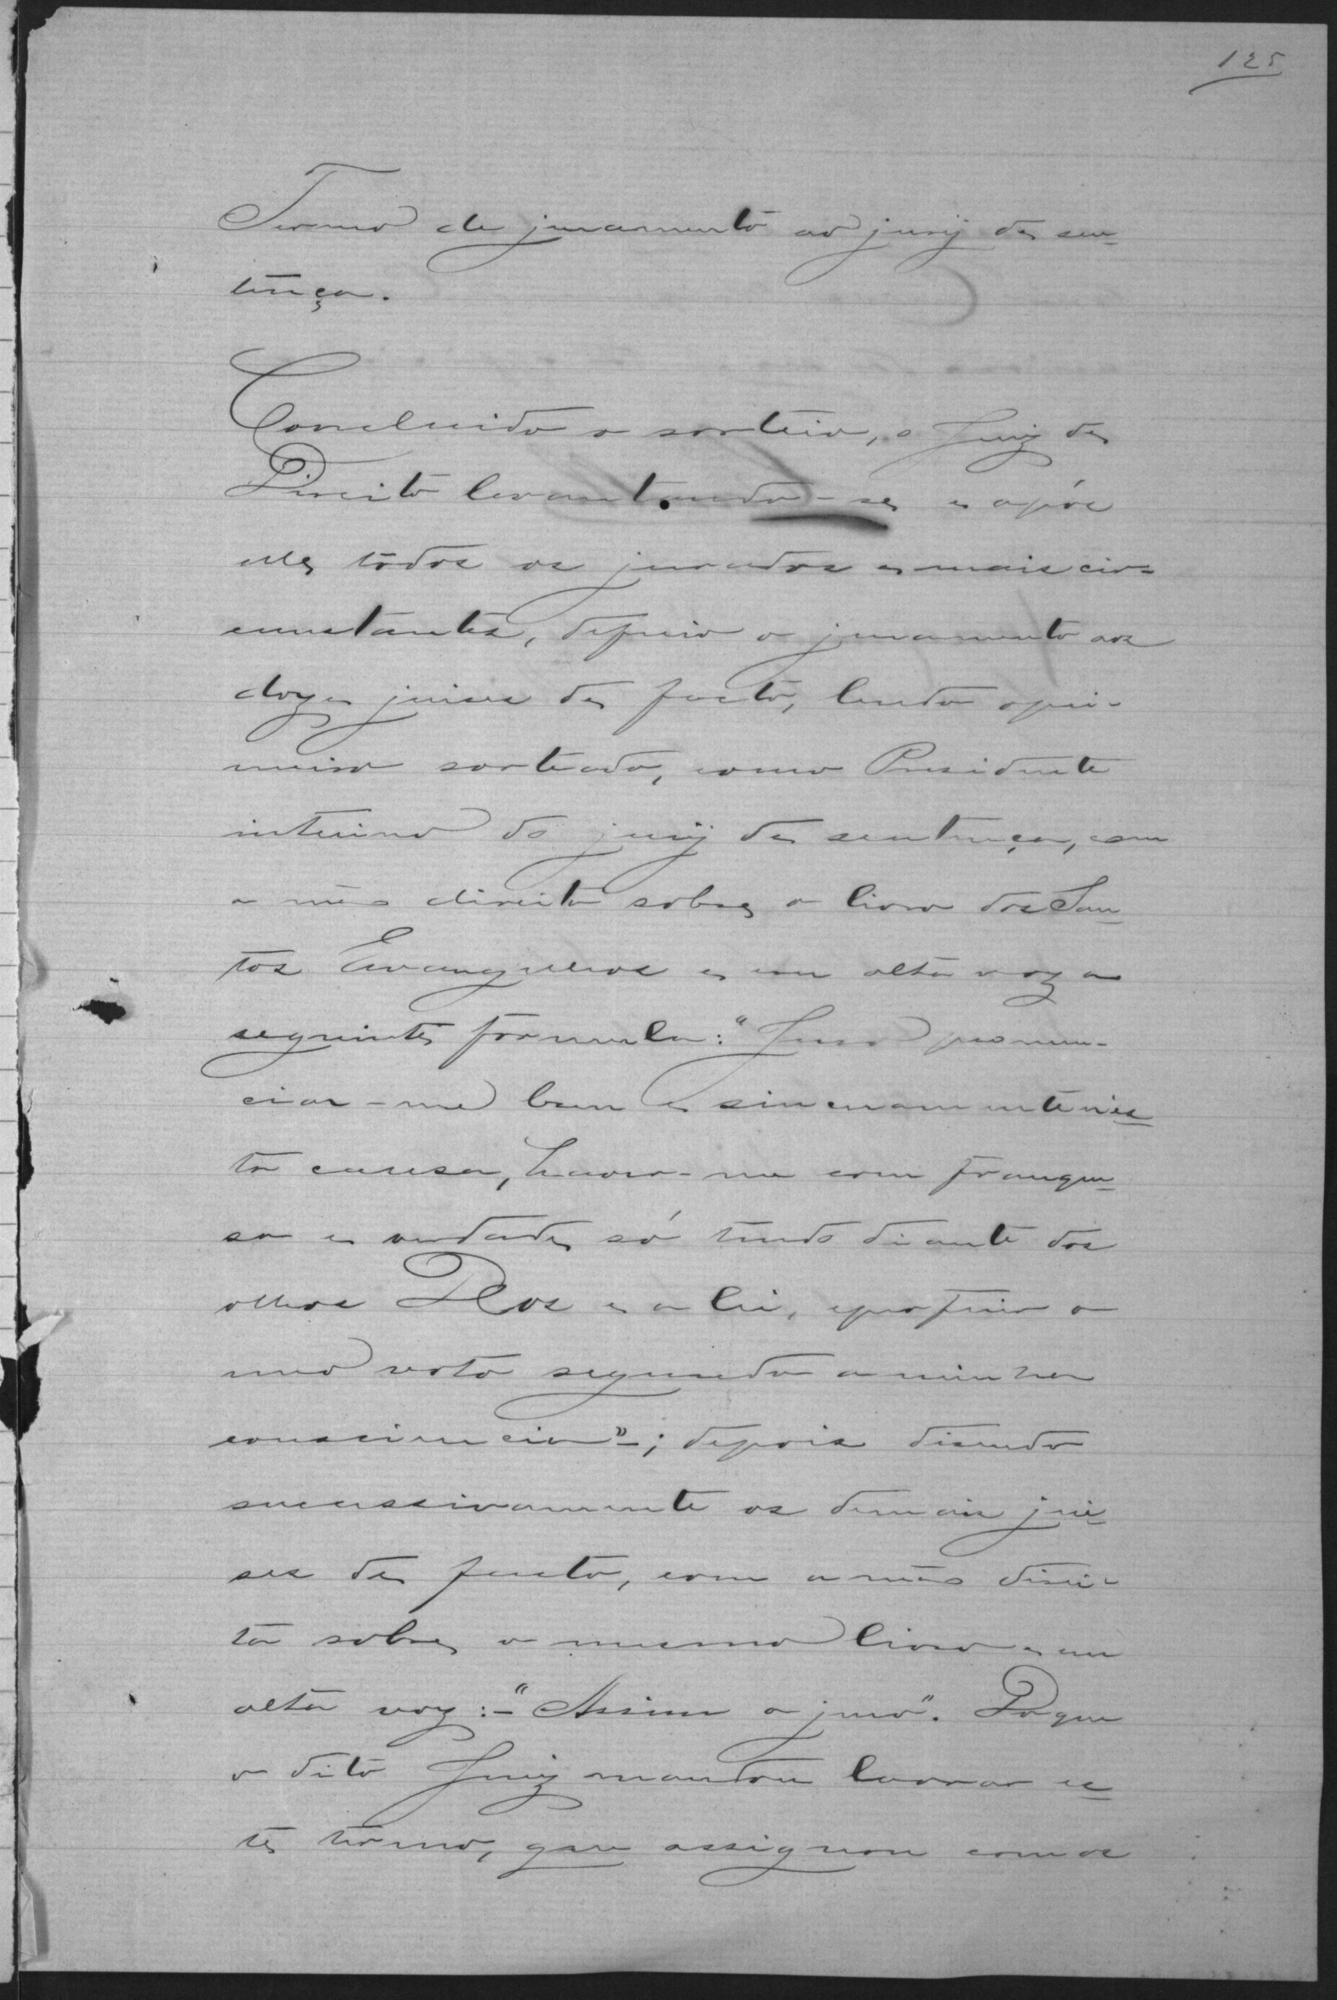 125
Termo de juramento ao jury de sen-
tença.
Concluido o sorteio, o Juiz de
Direito levantando-se e após
elle todos os jurados e mais cir-
cunstantes, deferio o juramento aos
doze juises de facto, lendo o pri-
meiro sorteado, como Presidente
interino do jury de sentença, com
a mão direita sobre o livro dos San-
tos Evangelhos e em alta voz a
seguinte formula: "Juro pronun-
ciar-me bem e sinceramente nes-
ta causa, haver-me com franque-
sa e verdade, só tendo diante dos
olhos Deos e a lei, e proferir o
meo voto segundo a minha
consciencia"-; depois disendo
sucessivamente os demais jui-
ses de facto, com a mão direi-
ta sobre o mesmo livro e em
alta voz:-"Assim o juro". Do que
o dito Juiz mandou lavrar es-
te termo, que assignou com os